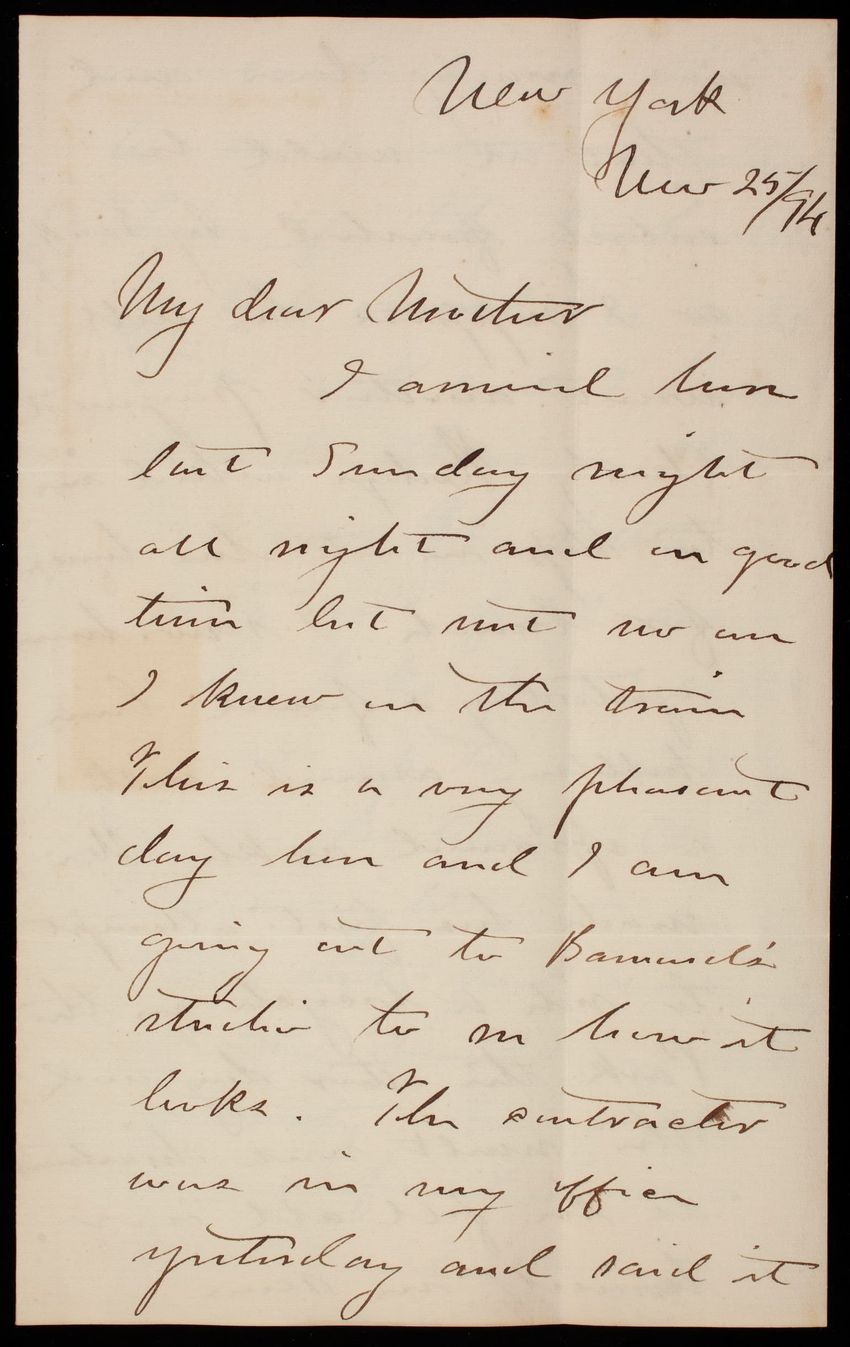 New York
Nov 25/94
My dear Mother
I arrived here
last Sunday night
all right and on good
time but met no one
I knew on the train
This is a very pleasant
day here and I am
going out to Barnard's
studio to see how it
looks. The contractor
was in my office
yesterday and said it